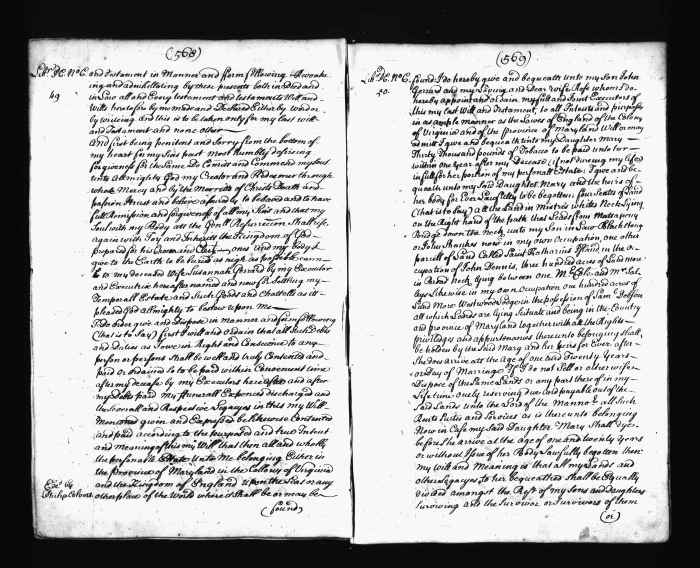 (568)
Lib.r P.C. No. C. and Testament in Manner and fform ffollowing Revoake
49
ing and anihillating by these presents both in Deed and
in Law all and Every testament and testaments Will and
Wills heretofor by me made and Declared Either by word or
by writeing and this is to be taken only for my last will
and Testament and none other
And first being penitent and Sorry from the bottom of
my heart for my Sins past most humbly desireing
forgiveness for the same Do Comitt and Commend my Soul
unto Allmighty God my Creator and Redeemer through
whose Mercy and by the Merrits of Christs Death and
passion I trust and believe assuredly to be saved and to have
full Remission and forgiveness of all my Sins and that my
Soul with my Body att the Gen.ll Resurrection Shall rise
again with Joy and Inheritt the Kingdom of God
prepared for his ones and my Body I
give to the Earth to be buried as nigh as possible
to my deceased Wife Susannah Gerard by my Executor
and Executrix hereafter named and now for Settling my
Temporall Estate and Such Goods and Chattells as itt
pleased God allmighty to bestow upon me
I do order give and Dispose in manner and form ffollowing
(that is to Say) first I will and ordain that all Such Debts
and duties as I owe in Right and Conscience to any
person or persons Shall be well and truly Contented and
paid or ordained to be paid within Convenient time
after my decease by my Executors hereafter and after
my debts paid my ffunerall Expences discharged and
the Severall and Respective Legacyes in this my Will
Menconed given and Expressed be likewise Contented
and paid according to the purposed and true Intent
and Meaning of this my Will that then all and wholly
the personable Estate unto Me belonging Either in
the Province of Maryland in the Collony of Virginia
and the Kingdom of England upon the Seas or any
other place of the World where it Shall be or may be
Philip Calvert
(found)
(569)
Lib.r P.C. No. C. found I do hereby give and bequeath unto my Son John
50.
Gerrard and my Loving and Dear wife Rose whom I do
hereby appoint and ordain my full and Joint Executors of
this my last Will and Testament, to all Intents and purposes
in as ample manner as the Laws of England of the Colony
of Virginia and of the province of Maryland Will or may
admitt I give and bequeath unto my Daughter Mary
Thirty Thousand pounds of Tobacco to be paid unto her
within one year after my decease (if not dureing my life)
in full for her portion of my personall Estate: I give and be=
queath unto my Said Daughter Mary and the heirs of
her body for Ever Lawfully to be begotten, four Seats of Land
(that is to Say) all the Land in Mistris Whites Neck Lying
on the Right hand of the path that Leads from Mattapeny
Bridge down the neck unto my Son in Law Blackstone
or John Shankes now in my own Occupation, one other
parcell of Land Called Saint Katharins Island in the oc=
cupation of John Dennis, three hundred acres of Land more
in Basid neck lying between one M.r Cole and M.r Sal=
leys Likewise in my own Occupation one hundred acres of
Land More Westwood Lodge in the possession of Sam.l Dobson
all which Lands are Lying Situate and being in the Country
and province of Maryland together with all the Rights
priviledges and appurtenances thereunto belonging Shall
be holden by the said Mary and her heirs for Ever after
She does arrive att the age of one and Twenty Years
or Day of Marriage If I do not Sell or otherwise
Dispose of the Same Lands or any part thereof in my
Lifetime only reserveing due and payable out of the
Said Lands unto the Lord of the Mannor all Such
Rents Suites and Services as is thereunto belonging
Now in Case my Said Daughter Mary Shall dye
before She arrive at the Age of one and twenty Years
or without Issue of her Body Lawfully begotten then
my Will and Meaning is that all my Lands and
other Legacyes to her bequeathed Shall be Equally
divided amongst the Rest of my Sons and Daughters
Surviving and the Survivor or Survivors of them
(or)